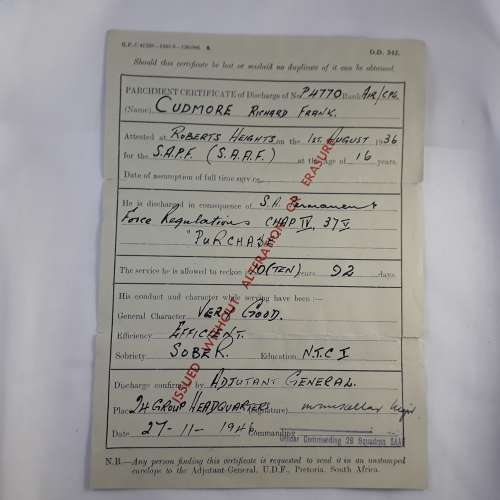 D.D. 342.
Should this certificate be lost or mislaid no duplicate of it can be obtained.
PARCHMENT CERTIFICATE of Discharge of No P4770 Rank AIR/CPL.
(Name) CUDMORE RICHARD FRANK.
Attested at ROBERTS HEIGHTS on the 1ST AUGUST 1936
for the S.A.P.F. (S.A.A.F.) at the Age of 16 years.
Date of assumption of full time service
He is discharged in consequence of S.A. Permanent
Force Regulations CHAP IV, 37 V
"PURCHASE
The service he is allowed to reckon 10 (TEN) years 92 days.
His conduct and character while serving have been :—
General Character VERY GOOD.
Efficiency EFFICIENT.
Sobriety SOBER. Education N.T.C I
Discharge confirmed by ADJUTANT GENERAL.
Place 24 GROUP HEADQUARTERS (Signature)
Date 27-11-1946 Commanding
Officer Commanding 28 Squadron SAAF
N.B.—Any person finding this certificate is requested to send it in an unstamped
envelope to the Adjutant-General, U.D.F., Pretoria, South Africa.
ISSUED WITHOUT ALTERATION OR ERASURE